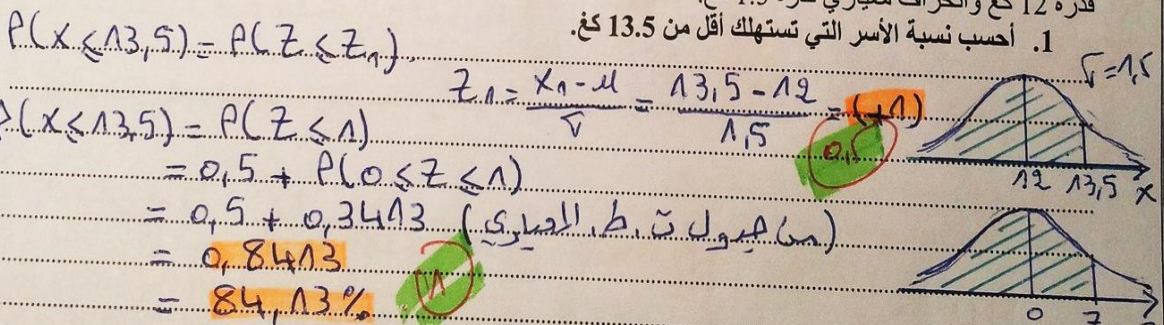 قدره 12 كغ وانحراف معياري قدره
1. أحسب نسبة الأسر التي تستهلك أقل من 13.5 كغ.
P(X ≤ 13,5) = P(Z ≤ Z₁)
Z₁ = (X₁ - μ)/σ = (13,5 - 12)/1,5 = (+1)
0,5
P(X ≤ 13,5) = P(Z ≤ 1)
= 0,5 + P(0 ≤ Z ≤ 1)
= 0,5 + 0,3413 (من جدول ت. ط. المعياري)
= 0,8413
= 84,13%
1
σ = 1,5
12 13,5 X
0